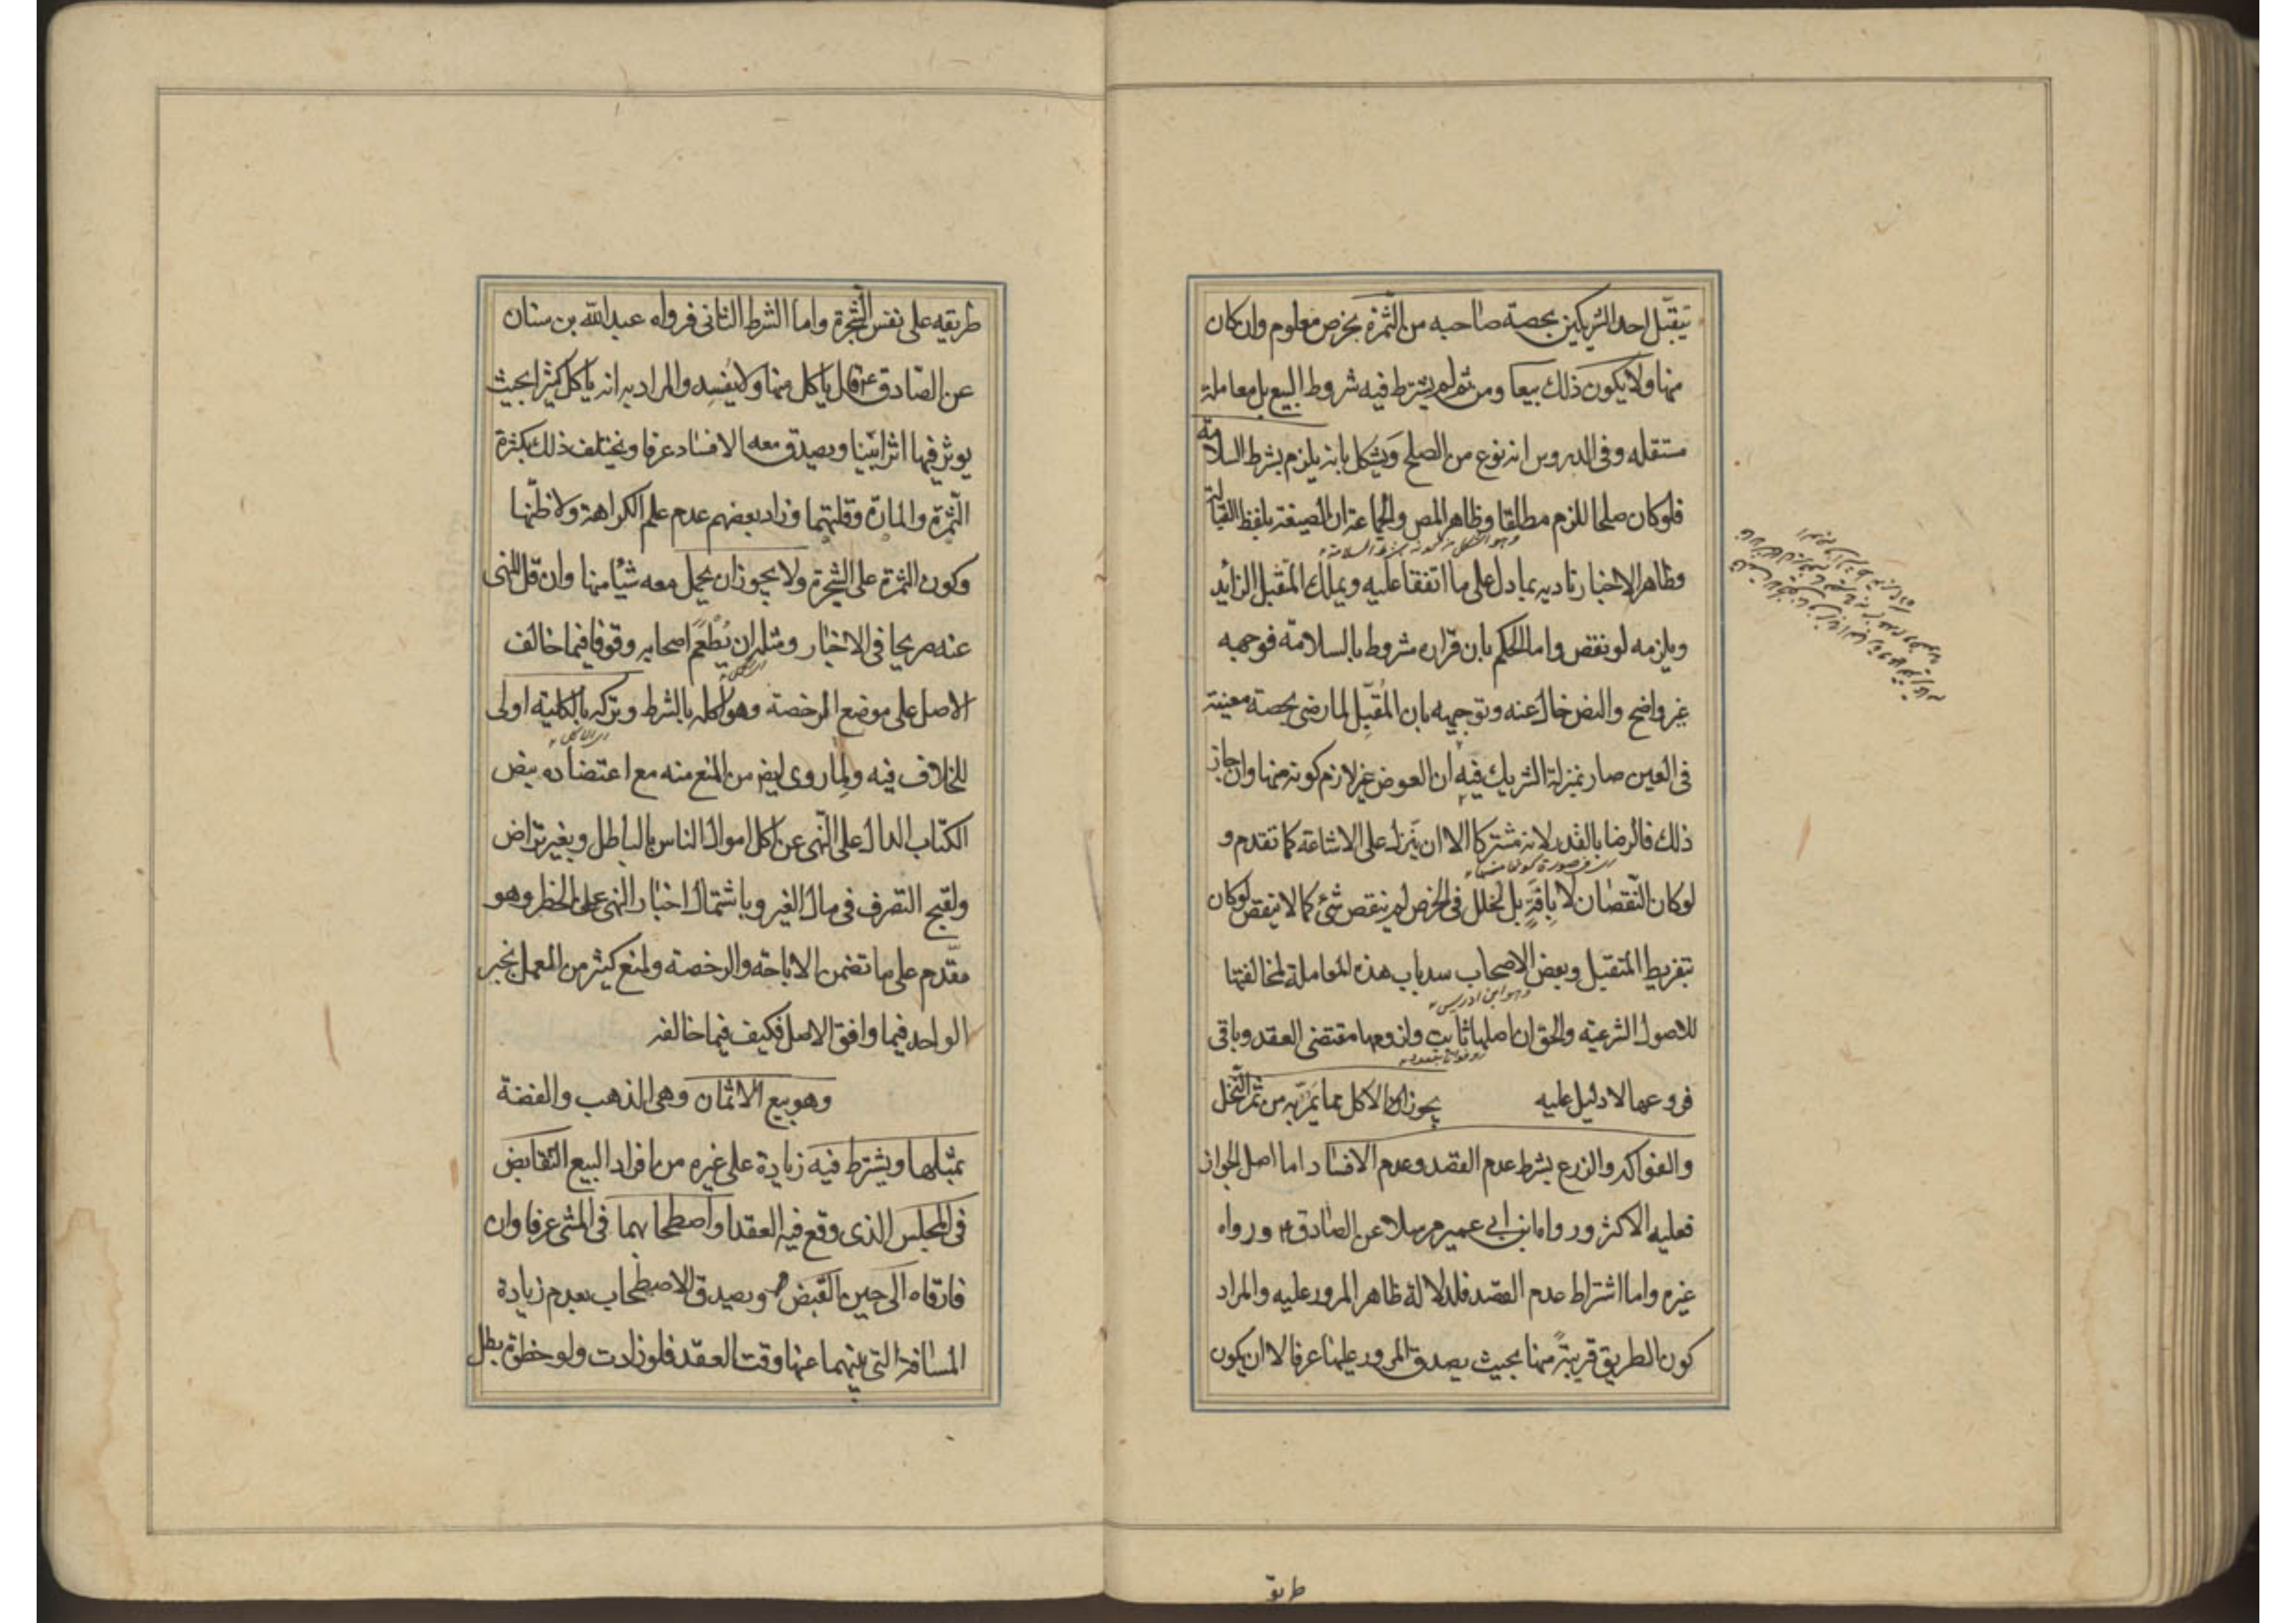 يتقبّل احد الشريكين بحصة صاحبه من الثمرة بخرص معلوم وان كان
منها ولا يكون ذلك بيعا ومن ثم لم يشترط فيه شروط البيع بل معاملة
مستقله وفى الدروس انه نوع من الصلح ويشكل بانه يلزم بشرط السلامة
فلو كان صلحا للزم مطلقا وظاهر المص والجماعة ان الصيغة بلفظ القبالة
وظاهر الاخبار تاديه بما دل على ما اتفقا عليه ويملك المتقبل الزائد
ويلزمه لو نقص واما الحكم بان قراره مشروط بالسلامة فوجهه
غير واضح والنص خال عنه وتوجيهه بان المُقبّل لما رضى بحصة معينة
فى العين صار بمنزلة الشريك فيه ان العوض غير لازم كونه منها وان جاز
ذلك فالرضا بالقدر لا به مشتركا الا ان ينزل على الاشاعة كما تقدم و
اى فى صورة كونها منها
لو كان النّقصان لا بآفةٍ بل لخلل فى الخرص لم ينقص شئ كما لا ينقص لو كان
بتفريط المتقبل وبعض الاصحاب سد باب هذه المعاملة لمخالفتها
وهو ابن ادريس
للاصول الشرعية والحق ان اصلها ثابت ولزومها مقتضى العقد وباقى
فروعها لا دليل عليه يجوز الاكل مما يَمُرّ به من ثمر النّخل
والفواكه والزرع بشرط عدم القصد وعدم الافساد اما اصل الجواز
فعليه الاكثر ورواه ابن ابى عمير مرسلا عن الصادق ع ورواه
غيره واما اشتراط عدم القصد فلدلالة ظاهر المرور عليه والمراد
كون الطريق قريبةً منها بحيث يصدق المرور عليها عرفا لا ان يكون
طريق
طريقه على نفس الشجرة واما الشرط الثانى فرواه عبدالله بن سنان
عن الصّادق ع قال ياكل منها ولا يُفسِد والمراد به انه ياكل كثيرا بحيث
يوثر فيها اثرا بيّنا ويصدق معه الافساد عرفا ويختلف ذلك بكثرة
الثّمرة والمارّة وقلتهما وزاد بعضهم عدم علم الكراهة ولا ظنّها
وكون الثمرة على الشجرة ولا يجوز ان يحمل معه شيأ منها وان قل للنهى
عنه صريحا فى الاخبار ومثله ان يُطْعِمَ اصحابه وقوفا فيما خالف
الاصل على موضع الرخصة وهو اكله بالشرط وتركه بالكلية اولى
للخلاف فيه ولِما روى ايض من المنع منه مع اعتضاده بنص
الكتاب الدال على النّهى عن اكل اموال الناس بالباطل وبغير تراض
ولقبح التصرف فى مال الغير وباشتمال اخبار النهى على الحظر وهو
مقدّم على ما تضمن الاباحة والرخصة ولمنع كثير من العمل بخبر
الواحد فيما وافق الاصل فكيف فيما خالفه
وهو بيع الاثمان وهى الذهب والفضة
بمثلها ويشترط فيه زيادة على غيره من افراد البيع التقابض
فى المجلس الذى وقع فيه العقد او اصطحابهما فى المشى عرفا وان
فارقاه الى حين القبض ويصدق الاصطحاب بعدم زيادة
المسافة التى بينهما عنها وقت العقد فلو زادت ولو خطوة بطل